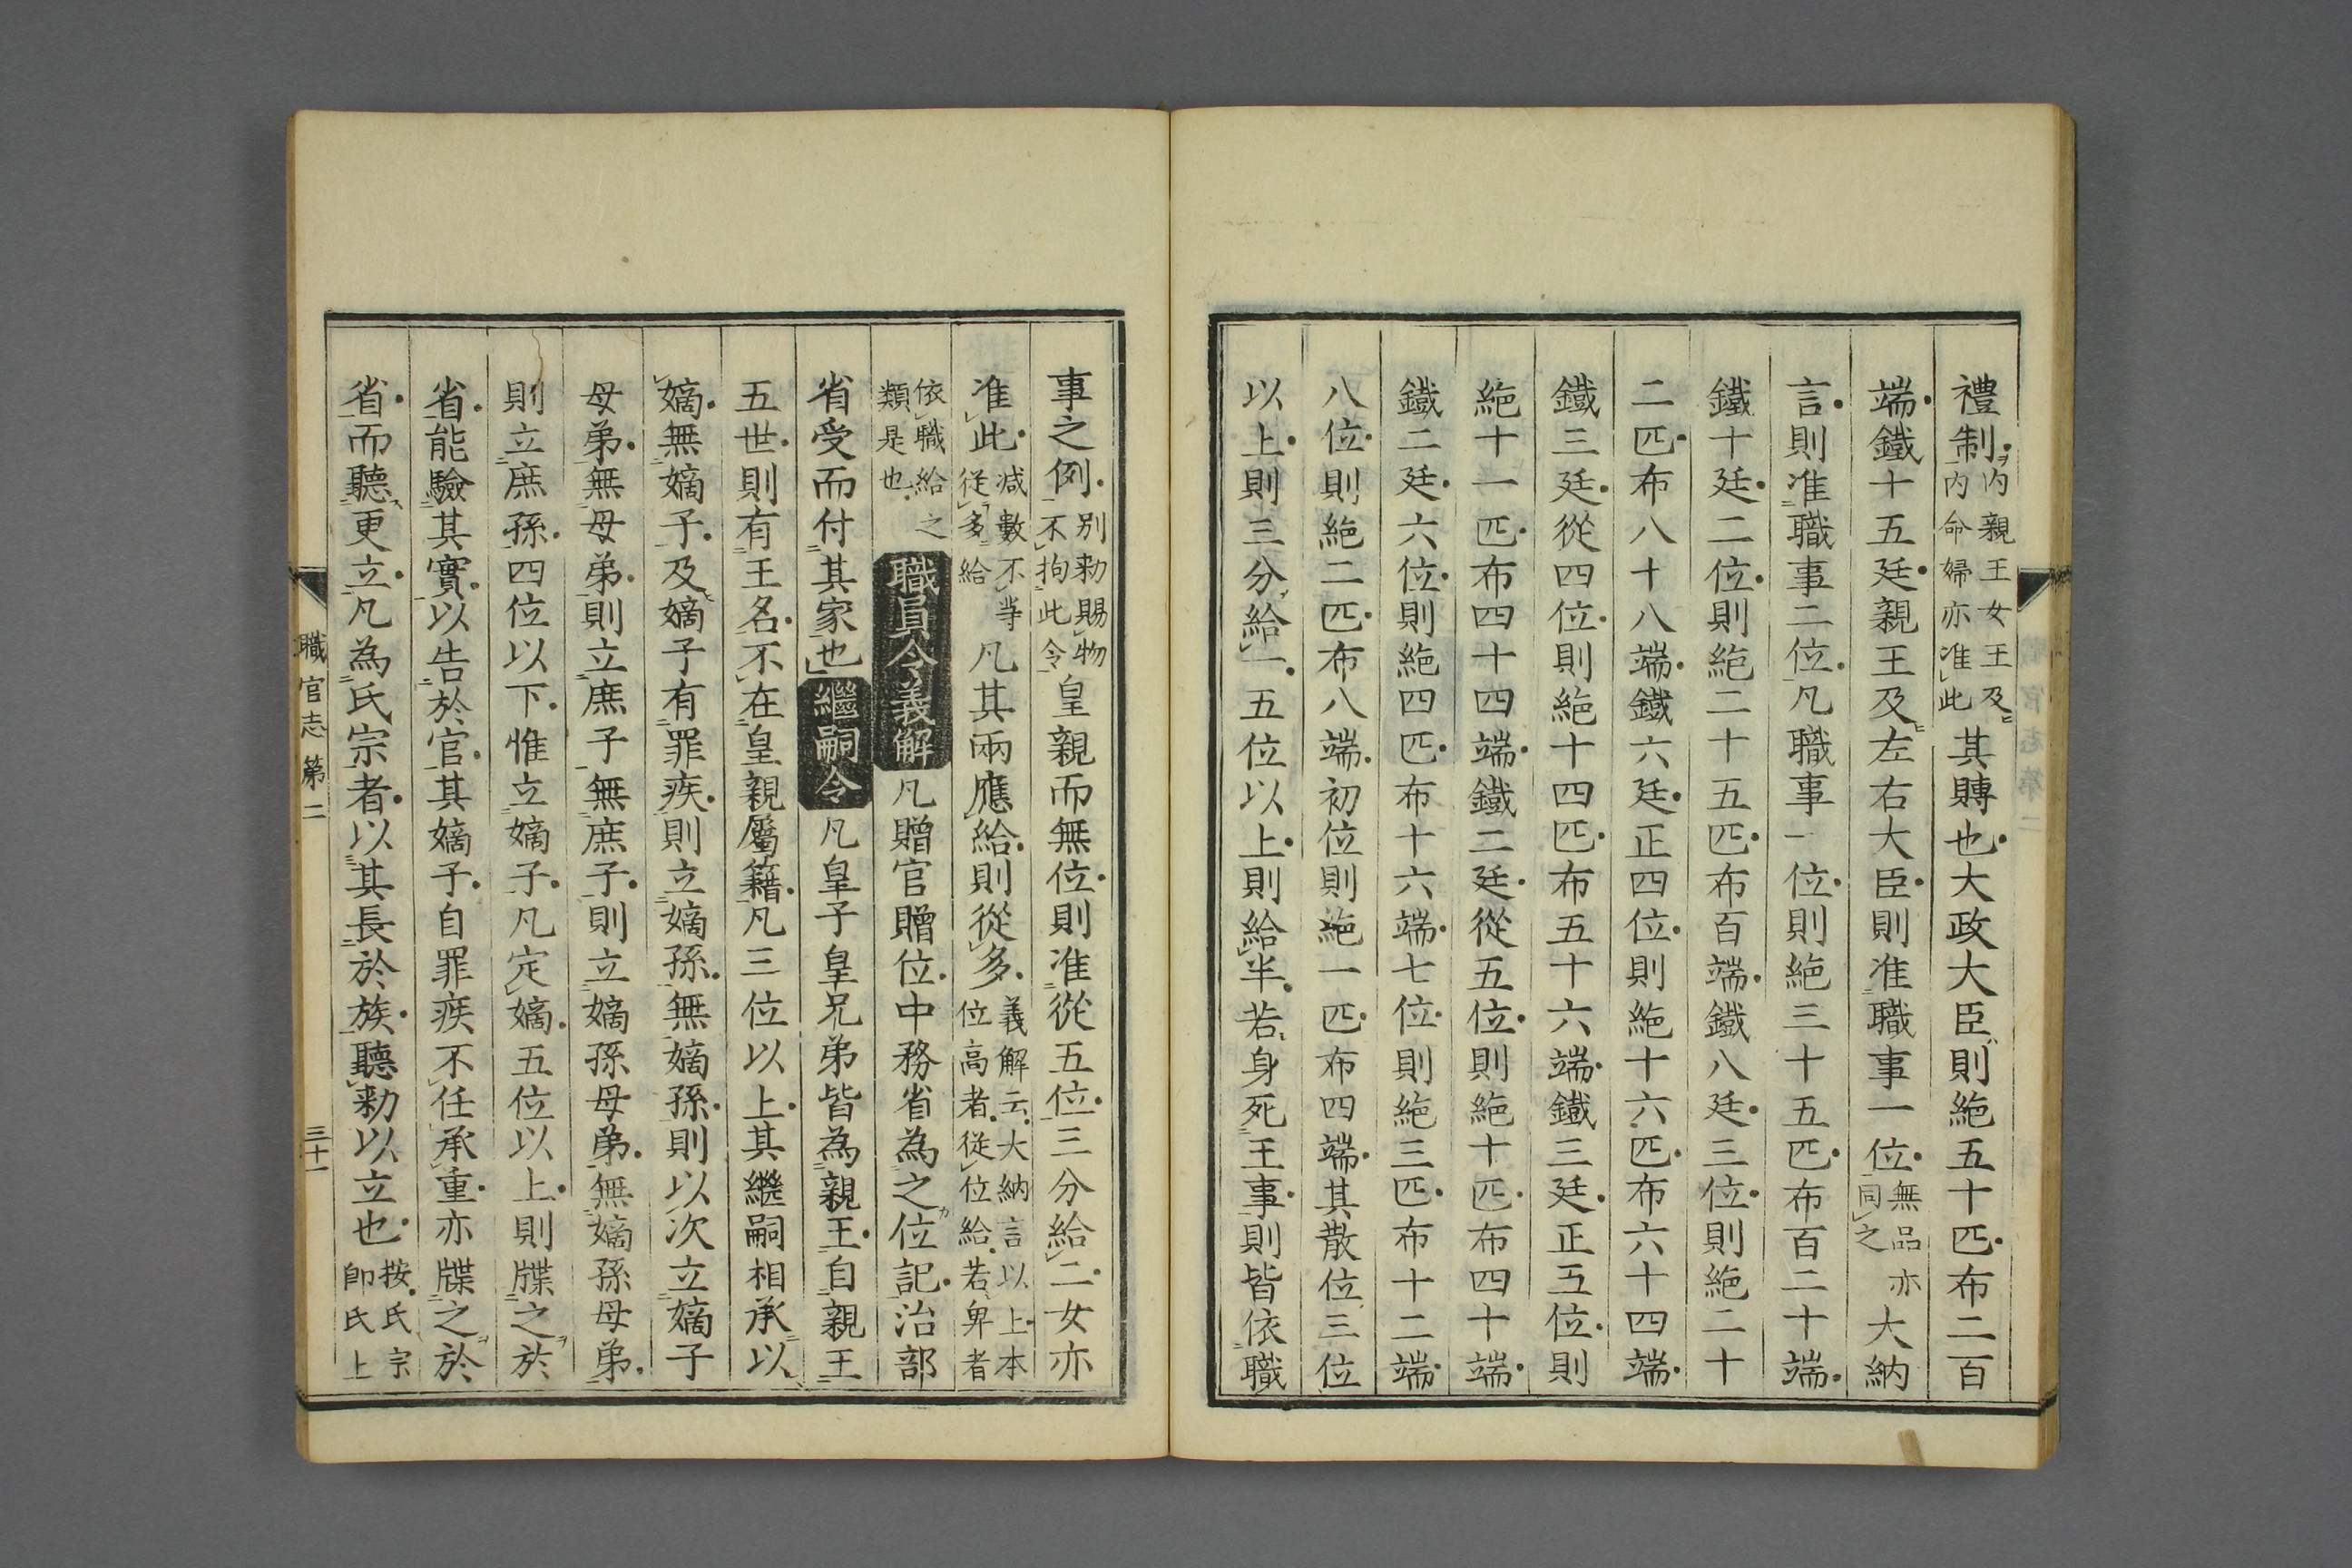 禮制内親王女王及内命婦亦准此其賻也大政大臣則絁五十匹布二百
端鐵十五廷親王及左右大臣則准職事一位無品亦同之大納
言則准職事二位凡職事一位則絁三十五匹布百二十端
鐵十廷二位則絁二十五匹布百端鐵八廷三位則絁二十
二匹布八十八端鐵六廷正四位則絁十六匹布六十四端
鐵三廷從四位則絁十四匹布五十六端鐵三廷正五位則
絁十一匹布四十四端鐵二廷從五位則絁十匹布四十端
鐵二廷六位則絁四匹布十六端七位則絁三匹布十二端
八位則絁二匹布八端初位則絁一匹布四端其散位三位
以上則三分給一五位以上則給半若身死王事則皆依職
事之例別勅賜物不拘此令皇親而無位則准從五位三分給二女亦
准此減數不等從多給凡其兩應給則從多義解云大納言以上本位高者從位給若卑者
依職給之類是也職員令義解凡贈官贈位中務省為之位記治部
省受而付其家也繼嗣令凡皇子皇兄弟皆為親王自親王
五世則有王名不在皇親屬籍凡三位以上其繼嗣相承以
嫡無嫡子及嫡子有罪疾則立嫡孫無嫡孫則以次立嫡子
母弟無母弟則立庶子無庶子則立嫡孫母弟無嫡孫母弟
則立庶孫四位以下惟立嫡子凡定嫡五位以上則牒之於
省能驗其實以告於官其嫡子自罪疾不任承重亦牒之於
省而聽更立凡為氏宗者以其長於族聽勅以立也按氏宗卽氏上
職官志 第二 三十一